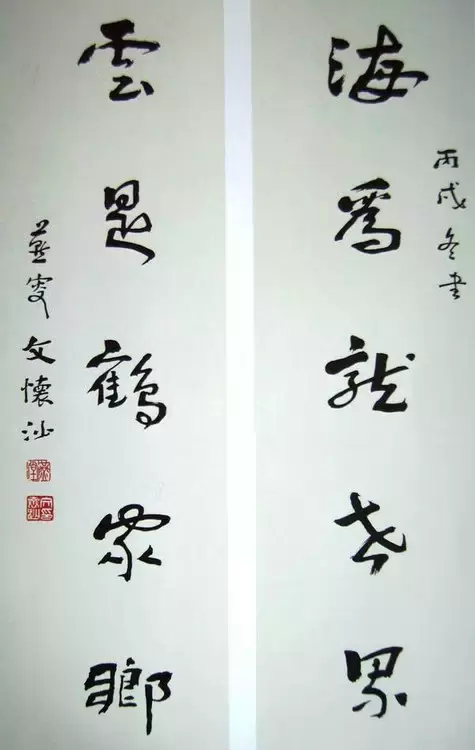 丙戌冬書
海爲龍世界
雲是鶴家鄉
燕叟文懷沙